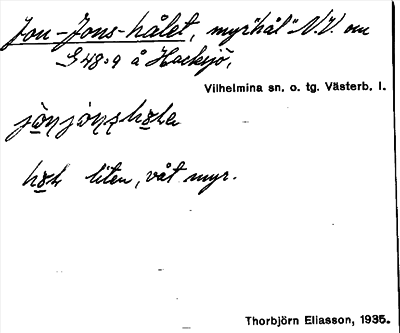 Jon-Jons-hålet, myr"hål" N.V. om
G48:9 å Hacksjö,
Vilhelmina sn. o. tg. Västerb. l.
liten, våt myr.
Thorbjörn Eliasson, 1935.